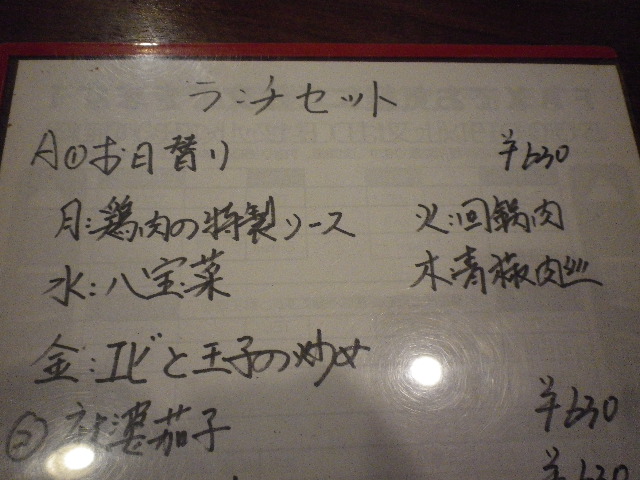 ランチセット
A①お日替り ¥630
月:鶏肉の特製ソース 火:回鍋肉
水:八宝菜 木:青椒肉絲
金:エビと玉子の炒め
② 麻婆茄子 ¥630
¥630